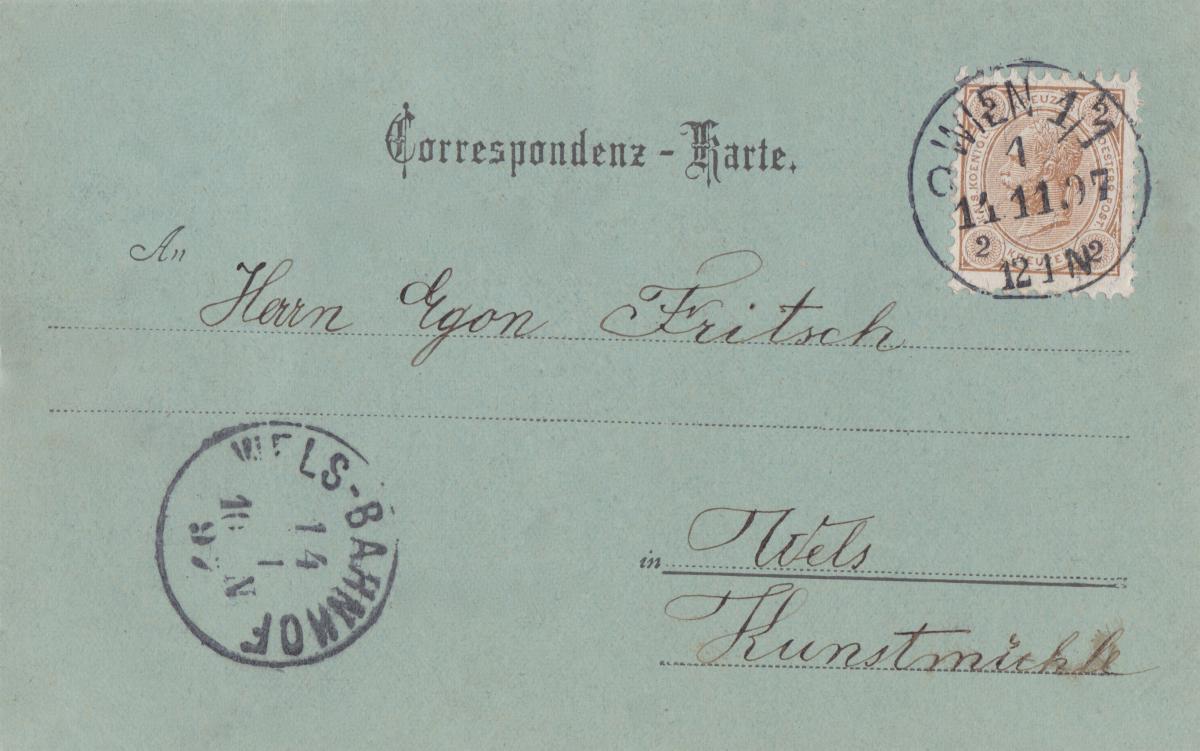 Correspondenz-Karte.
WIEN 1/1
1
11.11.97
12 1 N
2 2
2 2
KREUZER
An
Herrn Egon Fritsch
WELS-BAHNHOF
14
1
97
N
in Wels
Kunstmühle